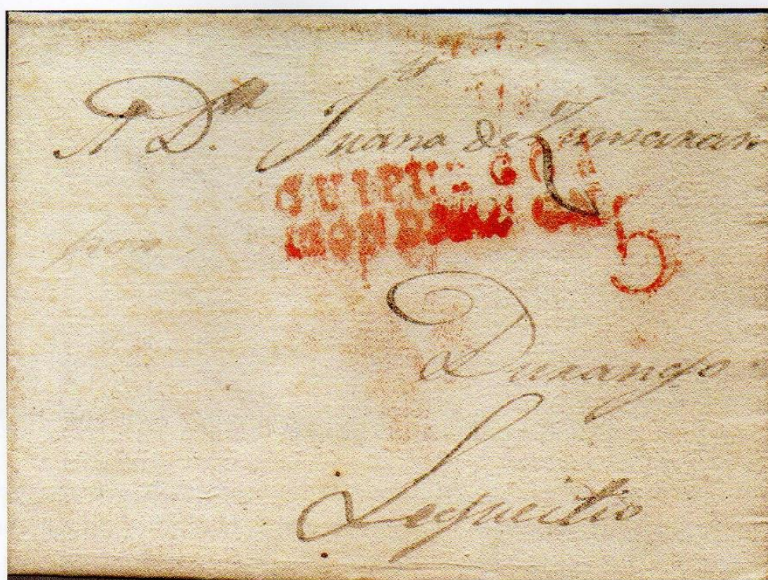 A Dª Juana de Zumaran
GUIPUZCOA
MONDRAGON
5
Durango
Lequeitio